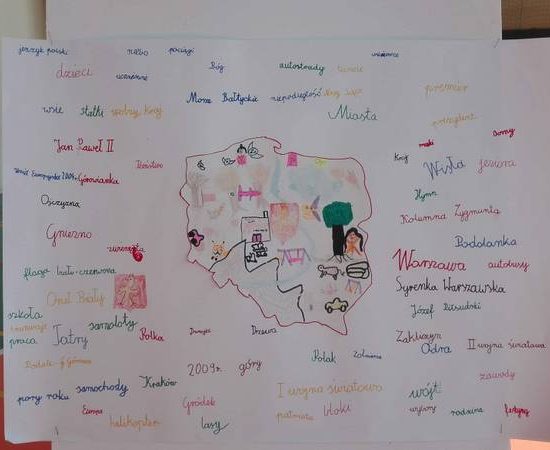 język polski
niebo
pociągi
dzieci
Bóg
autostrady
Morze Bałtyckie
niepodległość
Miasta
premier
prezydent
wsie
statki
Jan Paweł II
Ojczyzna
Gniezno
zwierzęta
flaga biało-czerwona
Orzeł Biały
szkoła
praca
Tatry
samoloty
Polka
pory roku
samochody
Kraków
Europa
helikopter
lasy
Gródek
2009r.
góry
Dunajec
Drzewa
Polak
Żołnierze
I wojna światowa
bloki
rodzina
wójt
zawody
Zakliczyn
Odra
II wojna światowa
Józef Piłsudski
Syrenka Warszawska
Warszawa
autobusy
Podolanka
Kolumna Zygmunta
Hymn
Wisła
jesiona
domy
rzeki